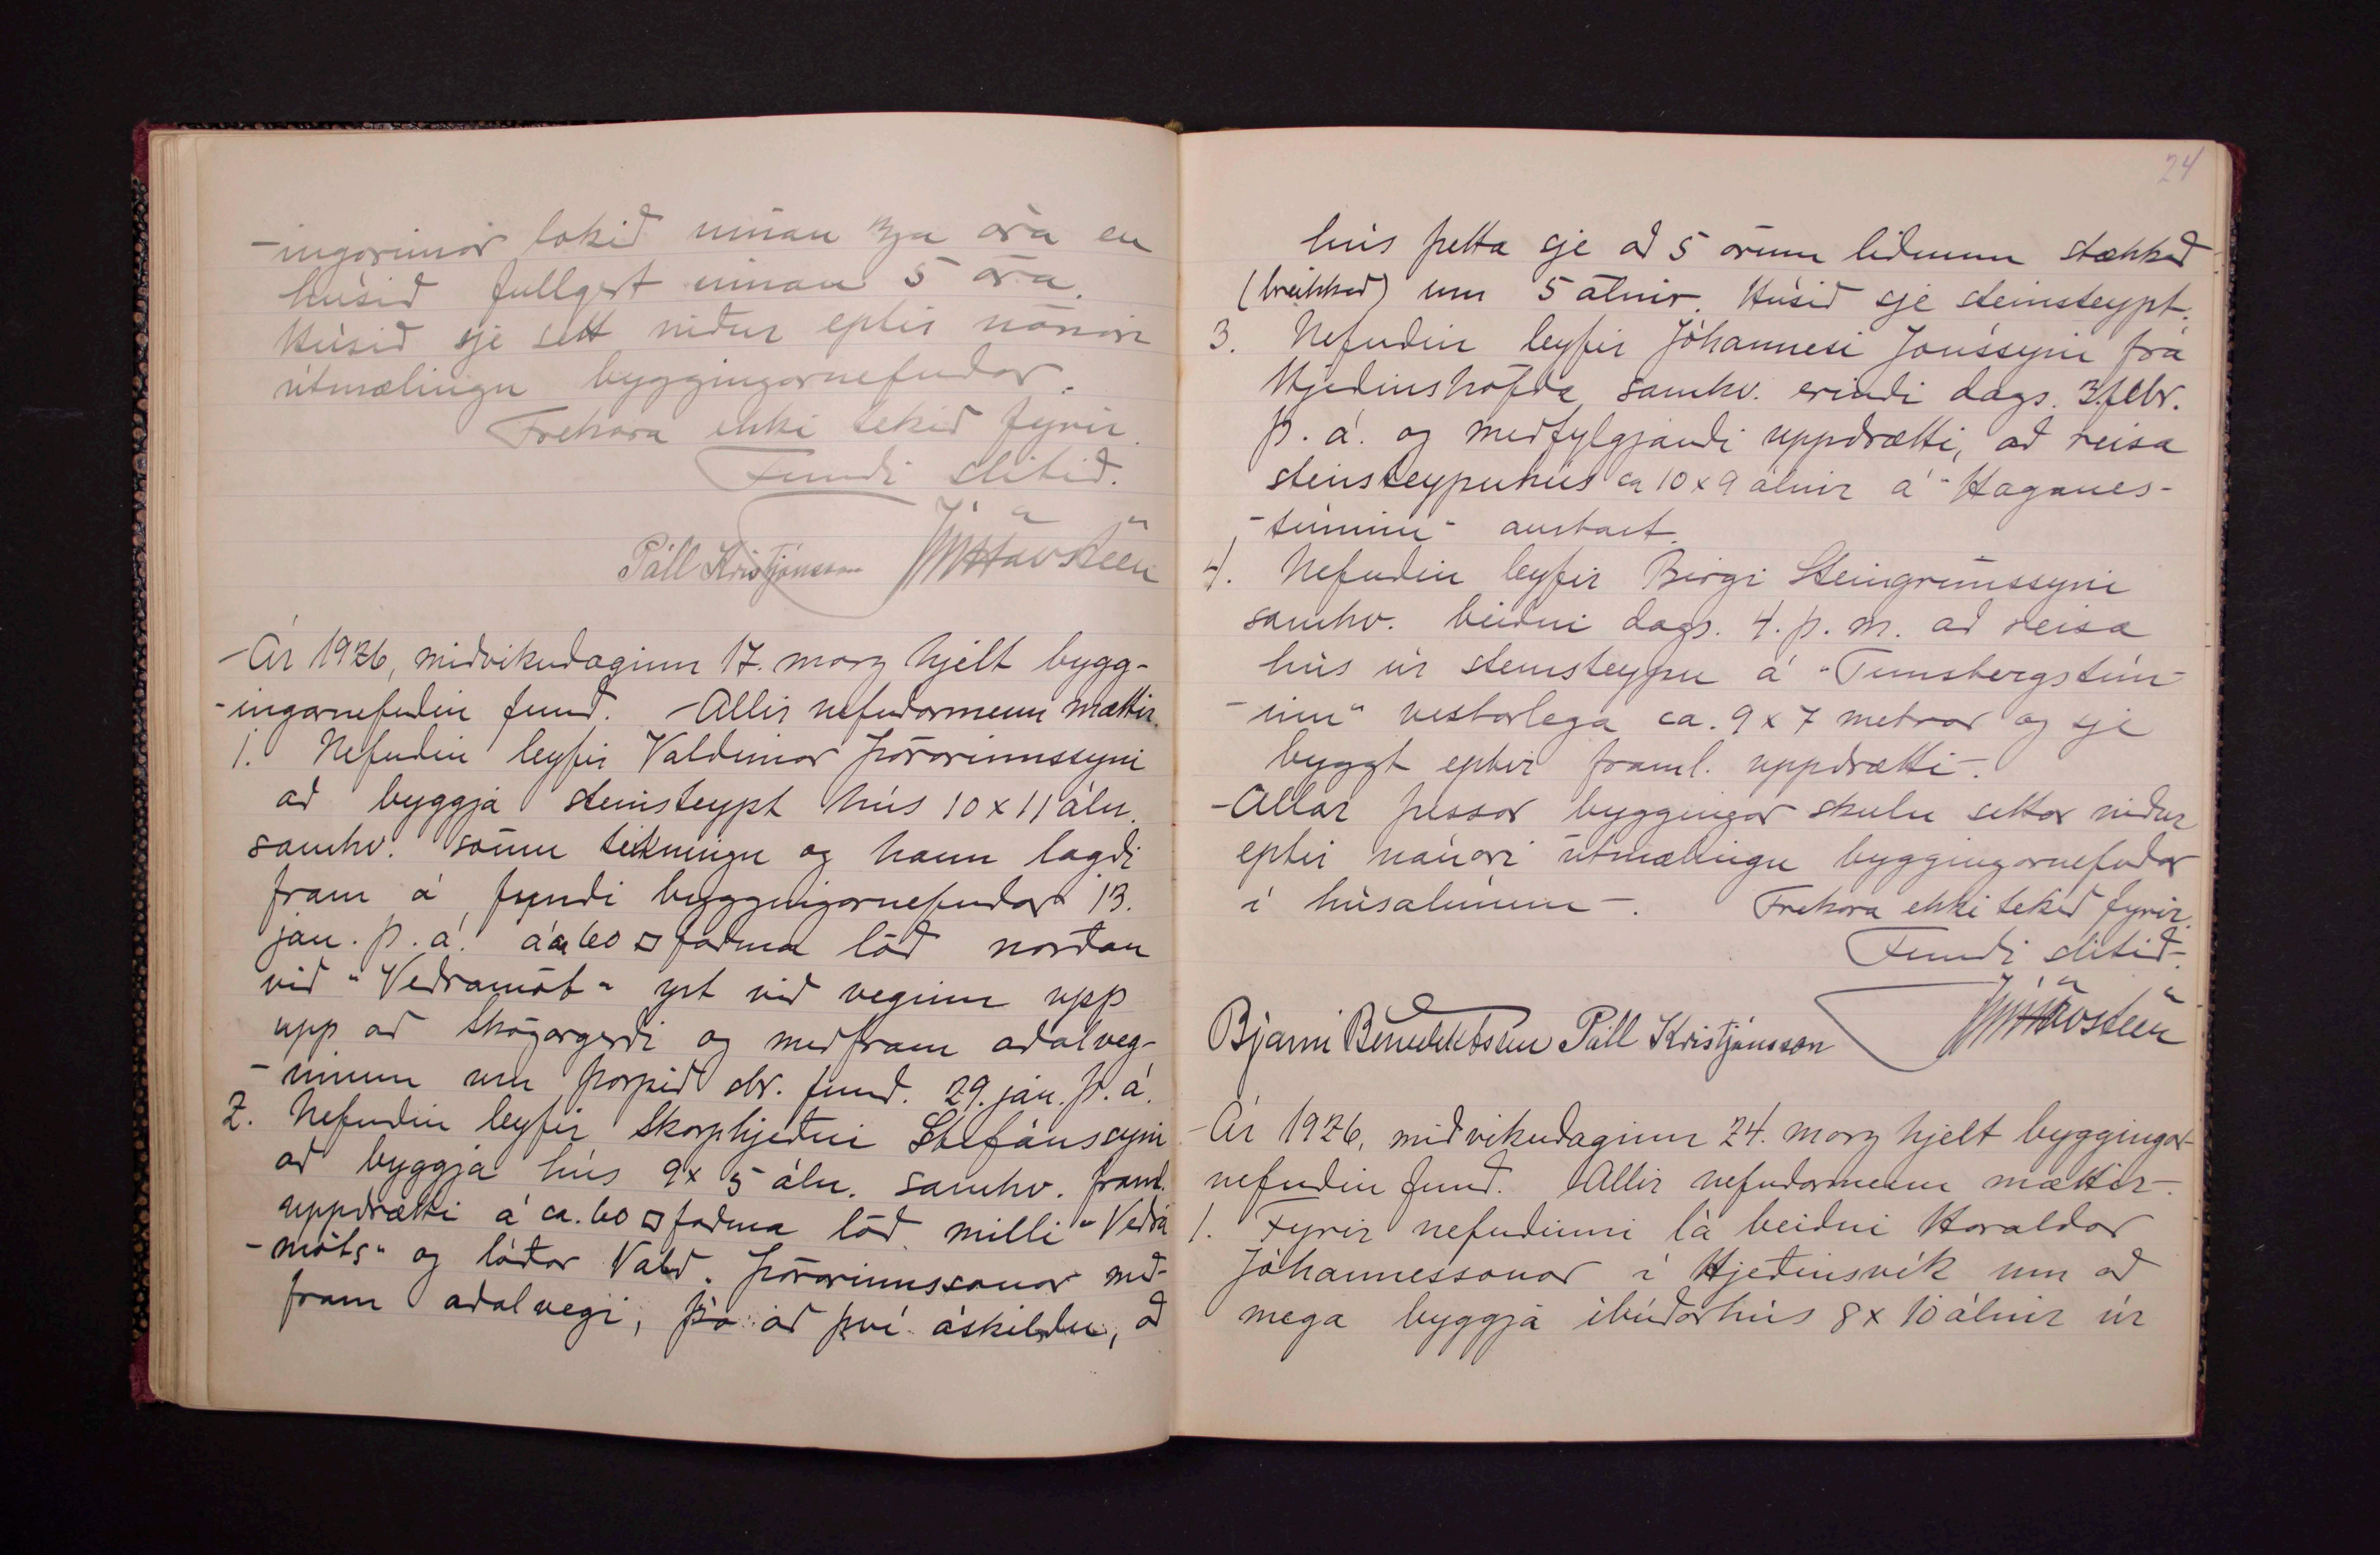 -ingarinnar lokið innan 3ja ára en
húsið fullgert innan 5 ára.
Húsið sje sett niður eptir nánari
útmælingu byggingarnefndar.
Frekara ekki tekið fyrir.
Fundi slitið.
Páll Kristjánsson JúlHavsteen
Ár 1926, miðvikudaginn 17. marz hjelt bygg-
-ingarnefndin fund. Allir nefndarmenn mættir.
1. Nefndin leyfir Valdimar Þórarinnssyni
að byggja steinsteypt hús 10 x 11 áln.
samkv. sömu teikningu og hann lagði
fram á fundi byggingarnefndar 13.
jan. þ. á. á ca 60 □ faðma lóð norðan
við "Veðramót" yst við veginn upp
upp að Skógargerði og meðfram aðalveg-
-inum um þorpið sbr. fund. 29. jan. þ. á.
2. Nefndin leyfir Skarphjeðni Stefánssyni
að byggja hús 9 x 5 áln. samkv. framl.
uppdrætti á ca. 60 □ faðma lóð milli "Veðra
-móts" og lóðar Vald. Þórarinnssonar með-
fram aðalvegi, þó að því áskildu, að
24
hús þetta sje að 5 árum liðnum stækkað
(breikkað) um 5 álnir. Húsið sje steinsteypt.
3. Nefndin leyfir Jóhannesi Jónssyni frá
Hjeðinshöfða samkv. erindi dags. 3. febr.
þ. á. og meðfylgjandi uppdrætti, að reisa
steinsteypuhús ca 10 x 9 álnir á "Haganes-
-túninu" austast.
4. Nefndin leyfir Birgi Steingrímssyni
samkv. beiðni dags. 4. þ. m. að reisa
hús úr steinsteypu á "Tunsbergstún-
-inu" vestarlega ca. 9 x 7 metrar og sje
byggt eptir framl. uppdrætti-.
Allar þessar byggingar skulu settar niður
eptir nánari útmælingu byggingarnefndar
í húsalínum-. Frekara ekki tekið fyrir
Fundi slitið-.
Bjarni Benediktsson Páll Kristjánsson JúlHavsteen
Ár 1926, miðvikudaginn 24. marz hjelt byggingar-
nefndin fund. Allir nefndarmenn mættir-.
1. Fyrir nefndinni lá beiðni Haraldar
Jóhannessonar í Hjeðinsvík um að
mega byggja íbúðarhús 8 x 10 álnir úr